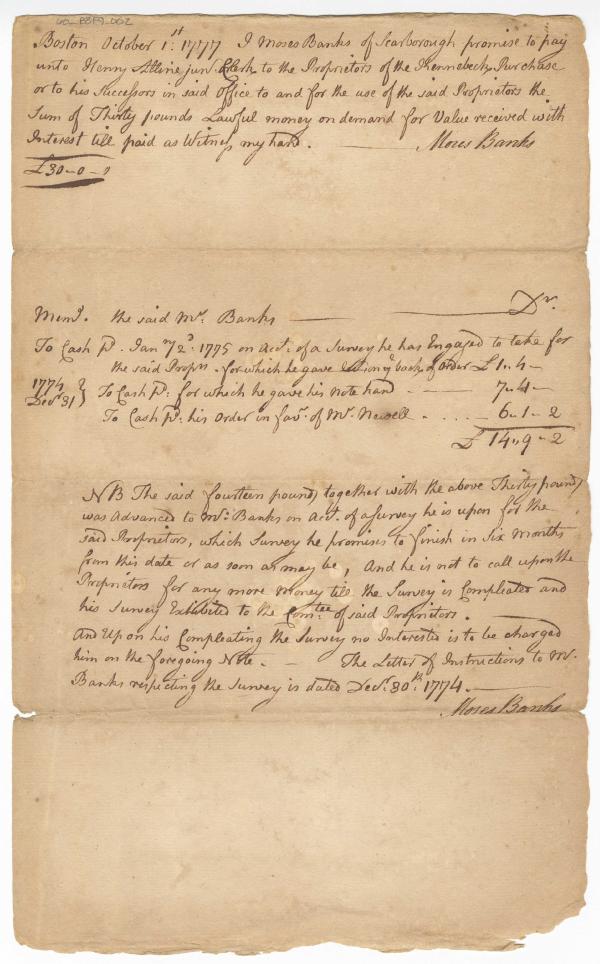 Boston October 1st: 1777 I Moses Banks of Scarborough promise to pay
unto Henry Alline junr. Clerk to the Proprietors of the Kennebeck Purchase
or to his Successors in said office to and for the use of the said Proprietors the
Sum of Thirty pounds Lawful money on demand for Value received with
Interest till paid as Witness my hand. Moses Banks
£30-0-0
Memo. the said Mr. Banks Dr.
To Cash pd. Jany 2d. 1775 on Acct. of a Survey he has Engaged to take for
the said Propr. for which he gave back of order £1-4-
1774 Decr. 31} To Cash pd: for which he gave his Note hand 7-4-
To Cash pd. his Order in favr. of Mr. Newell 6-1-2
£14-9-2
NB The said fourteen pounds together with the above Thirty pounds
was Advanced to Mr. Banks on Acct. of a Survey he is upon for the
said Proprietors, which Survey he promises to finish in Six Months
from this date or as soon as may be, And he is not to call upon the
Proprietors for any more Money till the Survey is Compleated and
his Survey Exhibited to the Comtee of said Proprietors.
And Upon his Compleating the Survey no Interested is to be charged
him on the foregoing Note. - The Letter of Instructions to Mr.
Banks respecting the Survey is dated Decr. 30th 1774.
Moses Banks